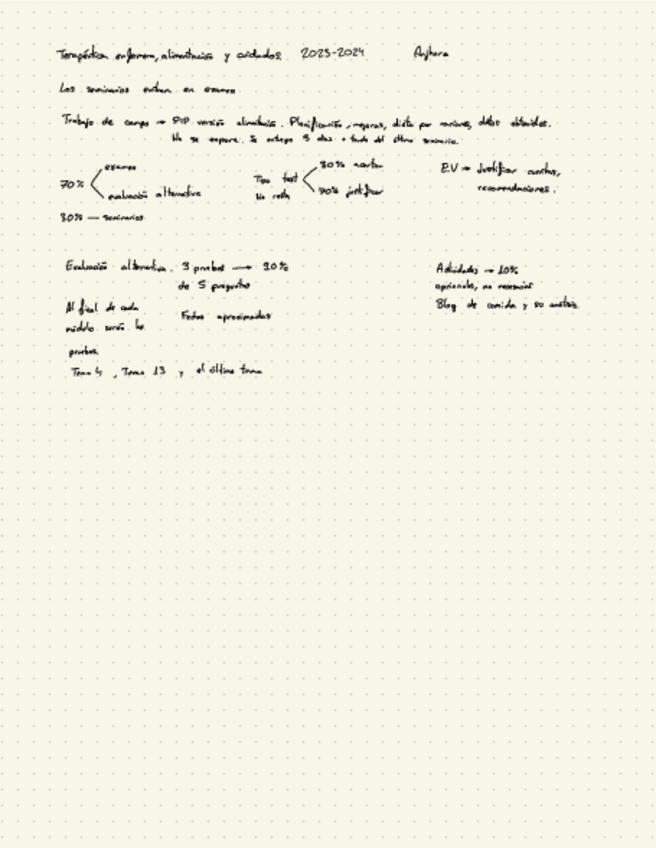 Terapéutica enfermera, alimentación y cuidados 2023-2024
Los seminarios entran en examen
Trabajo de campo → PIP versión alimentaria. Planificación, mejoras, dieta por raciones, datos obtenidos.
No se expone. Se entrega 5 días tarde del último seminario.
70%
examen
evaluación alternativa
30% — seminarios
Tipo test
No resta
30% acertar
70% justificar
EV → Justificar
recomendaciones.
Evaluación alternativa. 3 pruebas → 20%
de 5 preguntas
Al final de cada
módulo serán las
pruebas.
Fechas aproximadas
Tema 4, Tema 13 y el último tema
Actividades → 10%
opcionales, no necesarias
Blog de comida y su análisis.